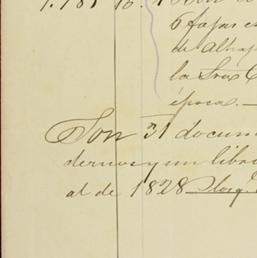 1.781 10.
6 fajas e
de alhaj
la Sra C
época.—
Son 31 docum
dernos y un libro
al de 1828